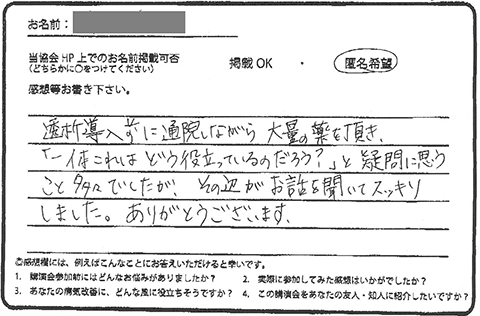 お名前：
当協会 HP 上でのお名前掲載可否
(どちらかに〇をつけてください)
掲載 OK ・ 匿名希望
感想等お書き下さい。
透析導入前に通院しながら 大量の薬を頂き、
「一体これは どう役立っているのだろう？」と 疑問に思う
こと多々でしたが、その辺がお話を聞いてスッキリ
しました。ありがとうございます。
◎感想欄には、例えばこんなことにお答えいただけると幸いです。
1. 講演会参加前にはどんなお悩みがありましたか？ 2. 実際に参加してみた感想はいかがでしたか？
3. あなたの病気改善に、どんな風に役立ちそうですか？ 4. この講演会をあなたの友人・知人に紹介したいですか？